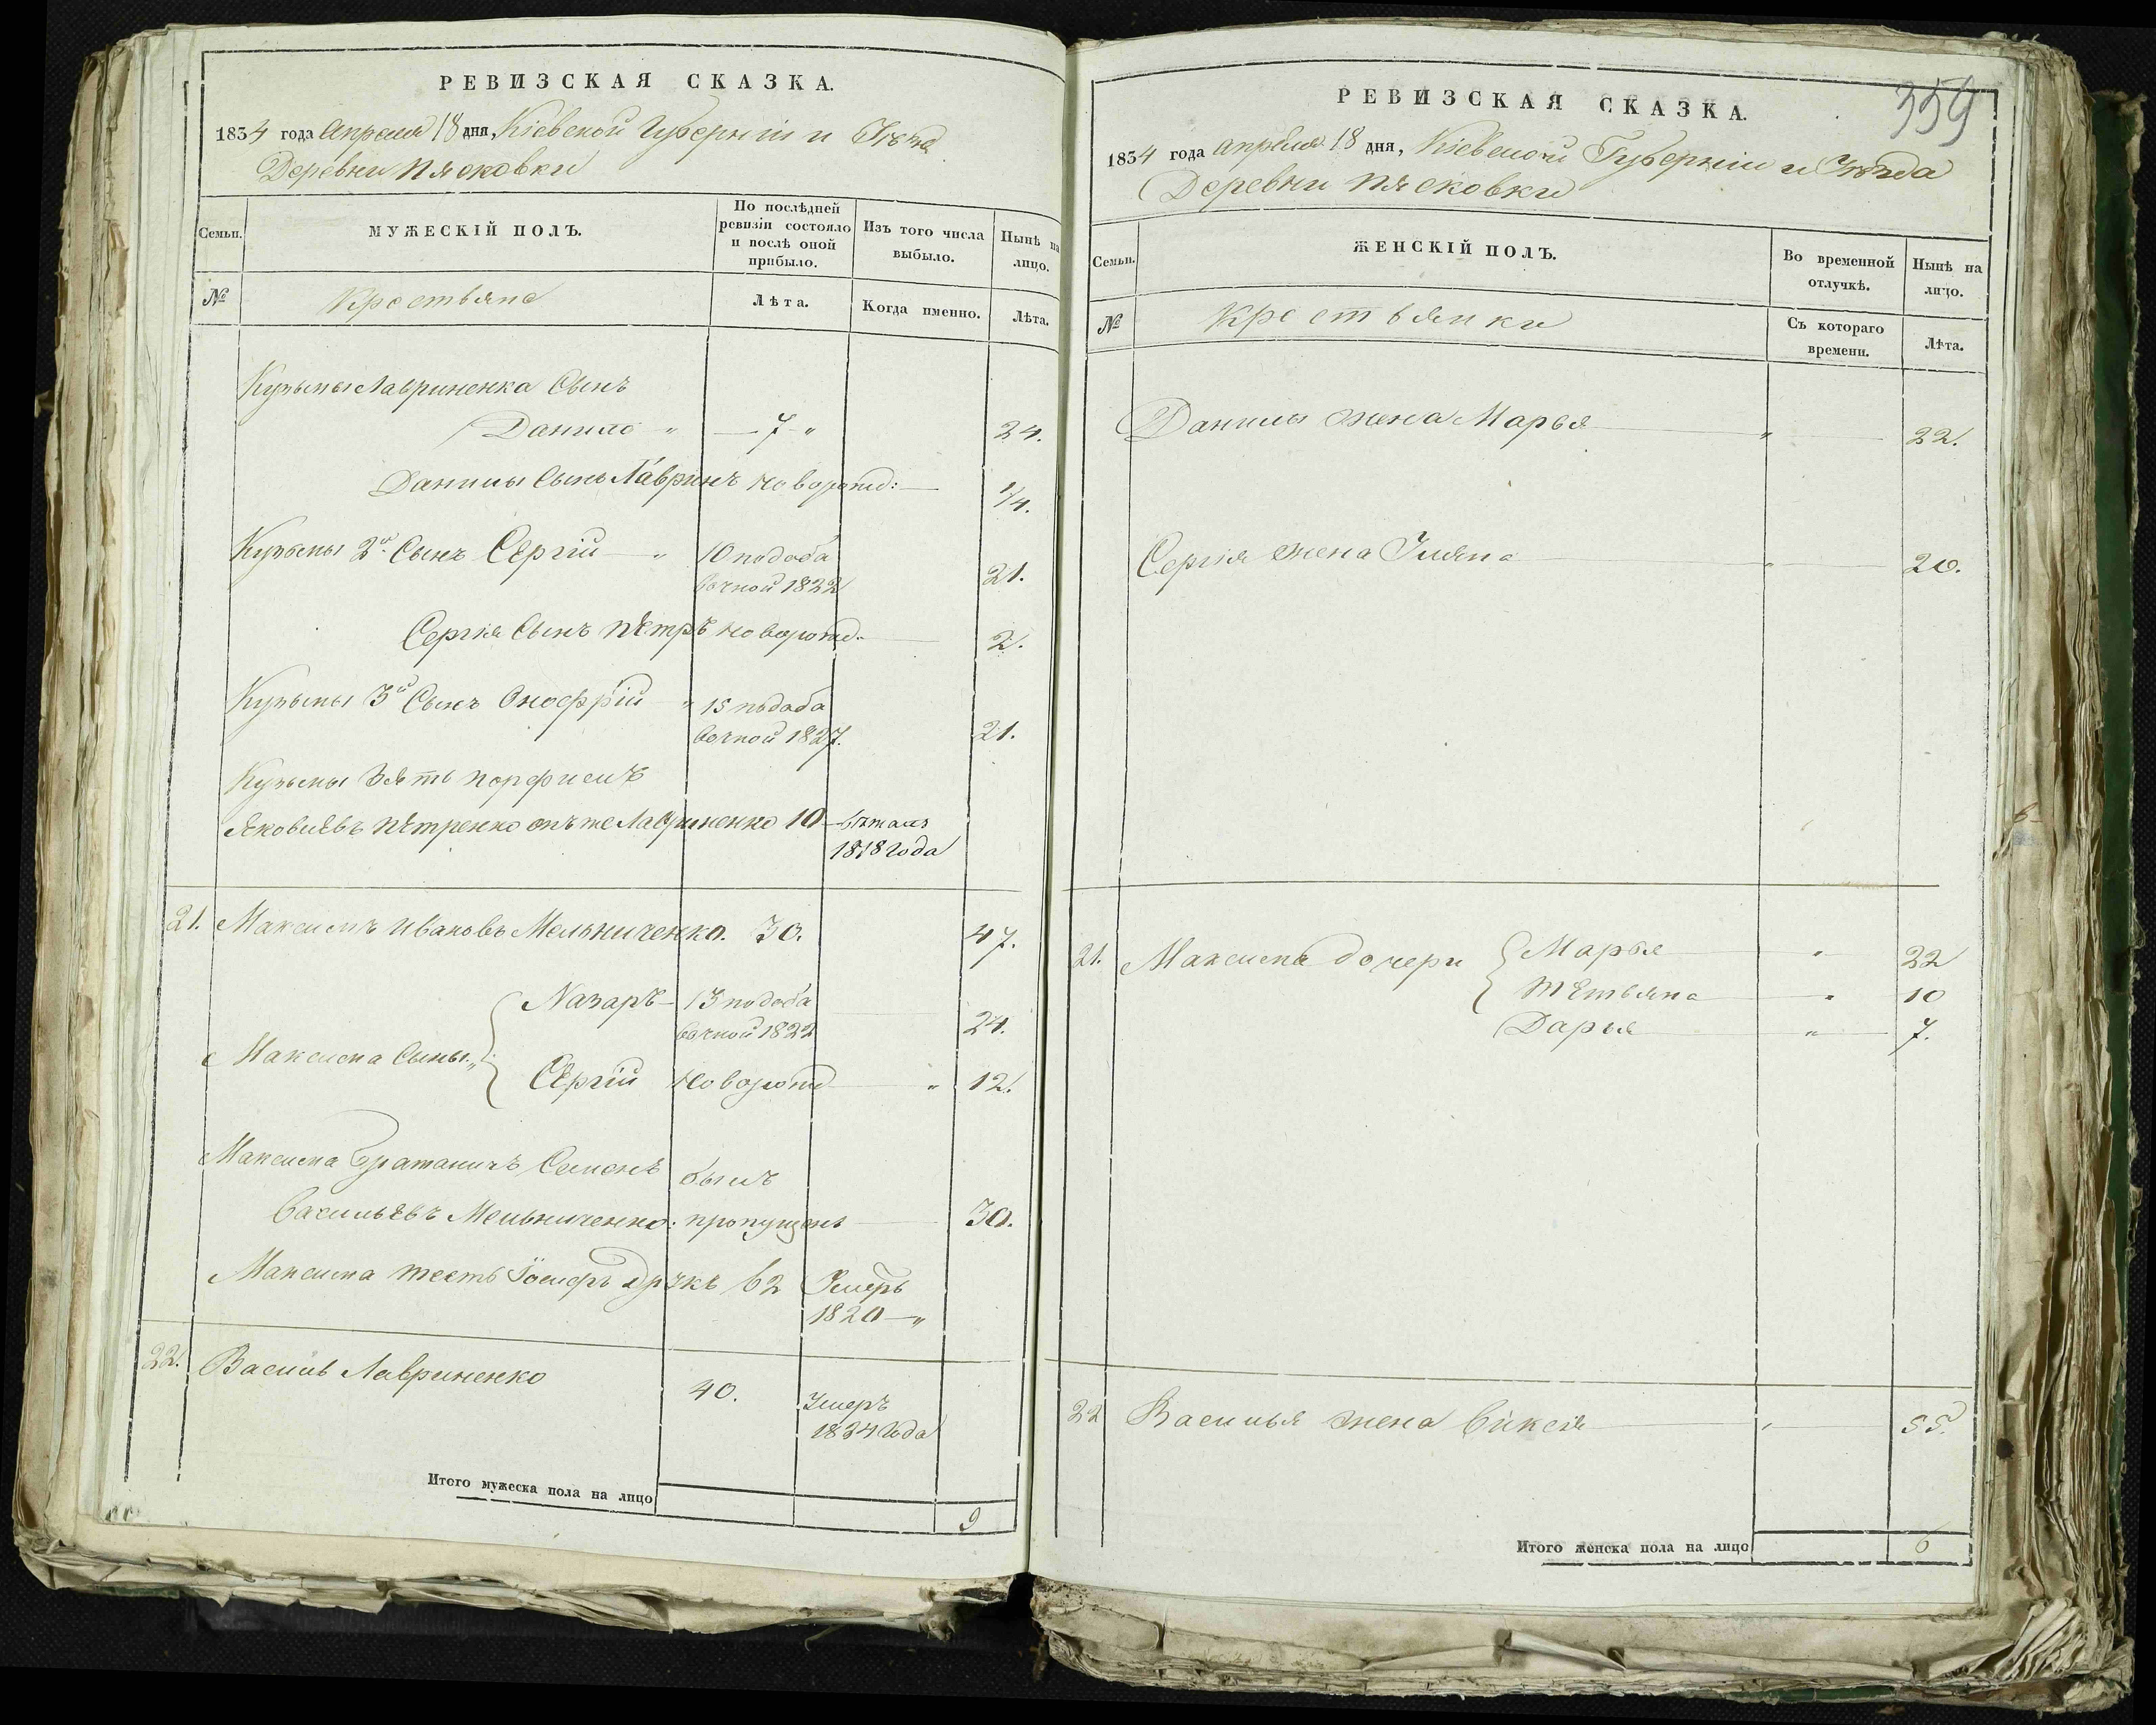 РЕВИЗСКАЯ СКАЗКА.
1834 года Апреля 18 дня, Кіевской Губерніи и Уѣзда
Деревни Пясковки
Семьи. МУЖЕСКІЙ ПОЛЪ. По послѣдней ревизіи состояло и послѣ оной прибыло. Изъ того числа выбыло. Нынѣ на лицо.
№ Крестьяне Лѣта. Когда именно. Лѣта.
Кузьмы Лавриненка Сынъ
Данило " — 7 " 24.
Данилы Сынъ Лавринъ новорожд: — 1/4.
Кузьмы 2й Сынъ Сергій — " 10 по доба
вочной 1822 21.
Сергія Сынъ Петръ новорожд: 2.
Кузьмы 3й Сынъ Онофрій " 15 по доба
вочной 1827. 21.
Кузьмы Зять Порфилъ
Яковлевъ Петренко онъ же Лавриненко 10 — бѣжалъ
1818 Года
21. Максимъ Ивановъ Мельниченко. 30. 47.
Назаръ — 13 по доба
вочной 1822 24.
Максима Сыны "
Сергій новорожд " 12.
Максима Братаничъ Семенъ былъ
Васильевъ Мельниченко: пропущенъ 30.
Максима тесть Іосифъ 62 Умеръ
1820 — "
22. Василь Лавриненко 40. Умеръ
1824 Года
Итого мужеска пола на лицо 9
359
РЕВИЗСКАЯ СКАЗКА.
1834 года апреля 18 дня, Кіевской Губерніи и Уѣзда
Деревни Пясковки
Семьи. ЖЕНСКІЙ ПОЛЪ. Во временной отлучкѣ. Нынѣ на лицо.
№ Крестьянки Съ котораго времени. Лѣта.
Данилы жена Марья " 22.
Сергія жена Уляна " 20.
21. Максима дочери Марья " 22
Тетьяна " 10
Дарья " 7.
22 Василья жена " 55.
Итого женска пола на лицо 6